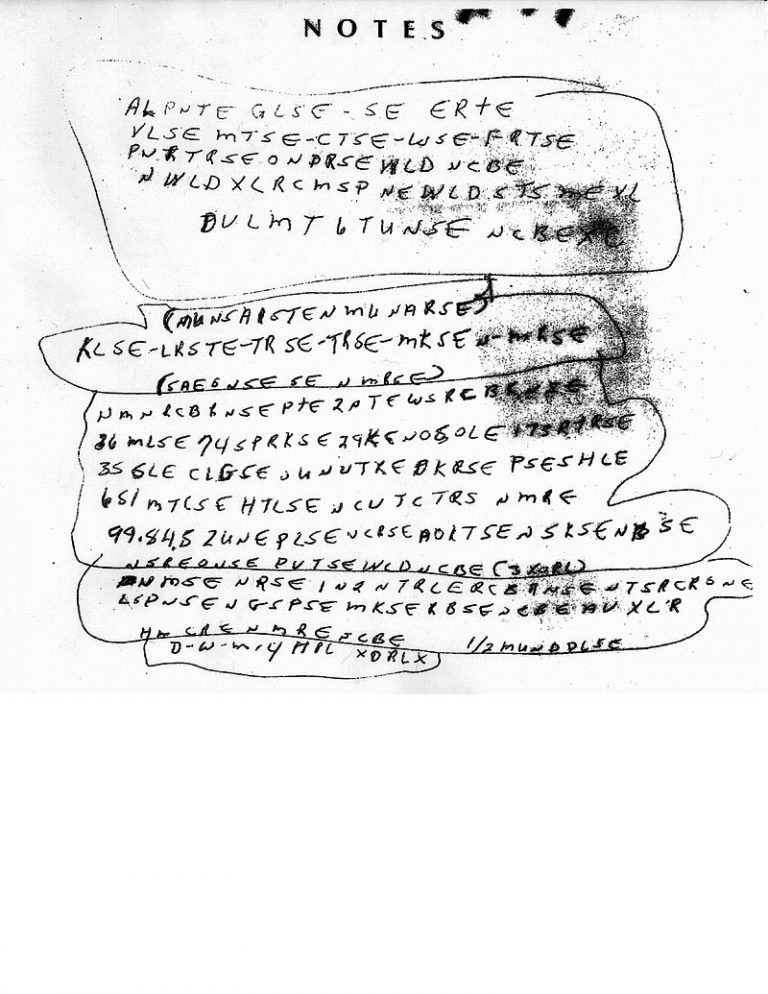 NOTES
ALPNTE GLSE-SE ERTE
VLSE MTSE-CTSE-WSE-FRTSE
PNRTRSEONDRSEWLD NCBE
NWLDXLRCMSP NEWLDSTS MEXL
DULMT 6 TUNSE NCBEXC
(MUNSAISTEN MUNARSE)
KLSE-LRSTE-TRSE-TRSE-MKSEN-MRSE
(SAE6NSE SE NMRSE)
NMNRCBRNSEPTE2PTEWSRCBRNSE
36 MLSE 74SPRKSE 29KENOSOLE 173RTRSE
35 GLE CLGSE UUNUTXE DKRSE PSESHLE
651 MTCSE HTLSE NCUTCTRS NMRE
99.84.5 2UNE PLSE NCRSE AOLTSE NSKSENBSE
NSREONSE PUTSEWLD NCBE (3XORL)
NRSE IN2 NTRLERCBRNSE NTSRCRSNE
LSPNSENGSPSE MKSERBSENCBE AUXLR
HM CRE NMRE NCBE 1/2 MUNDDLSE
D-W-M-4 MPL XDRLX